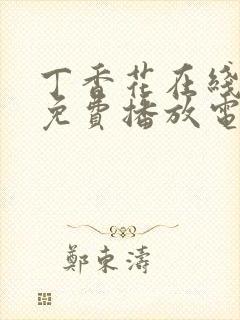 丁香花在綫
免費播放電
鄭東濤